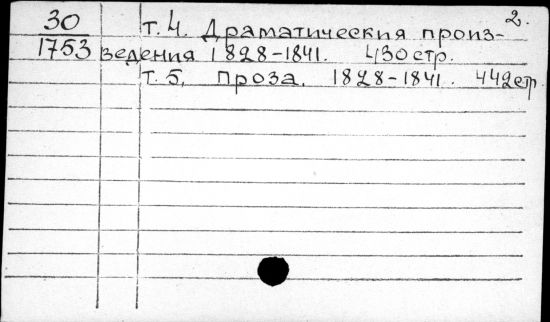 2.
30 т. 4. Драматическия произ-
1753 ведения 1828-1841. 430 стр.
т. 5. Проза. 1828-1841. 442 стр.